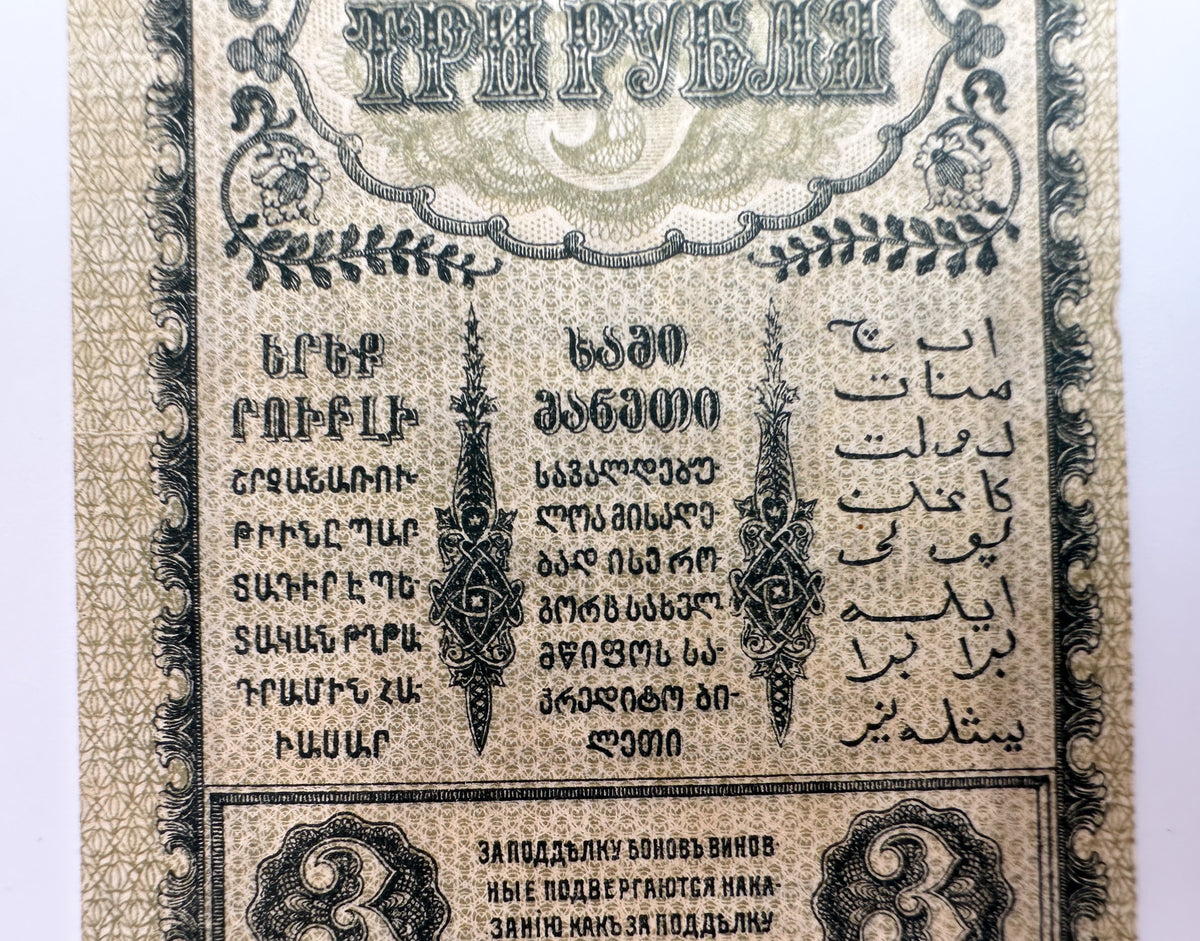 ТРИ РУБЛЯ
ԵՐԵՔ
ՐՈՒԲԼԻ
ՇՐՋԱՆԱՌՈՒ-
ԹԻՒՆԸ ՊԱՐ
ՏԱԴԻՐ Է ՊԵ-
ՏԱԿԱՆ ԹՂԹԱ-
ԴՐԱՄԻՆ ՀԱ-
ՒԱՍԱՐ
სამი
მანეთი
სავალდებუ-
ლოა მისაღე-
ბად ისე რო-
გორც სახელ-
მწიფოს სა-
კრედიტო ბი-
ლეთი
اوچ
منات
دولت
كاغذ
پولی
ايله
برابر
ЗА ПОДДѢЛКУ БОНОВЪ ВИНОВ-
НЫЕ ПОДВЕРГАЮТСЯ НАКА-
ЗАНІЮ КАКЪ ЗА ПОДДѢЛКУ
3
3